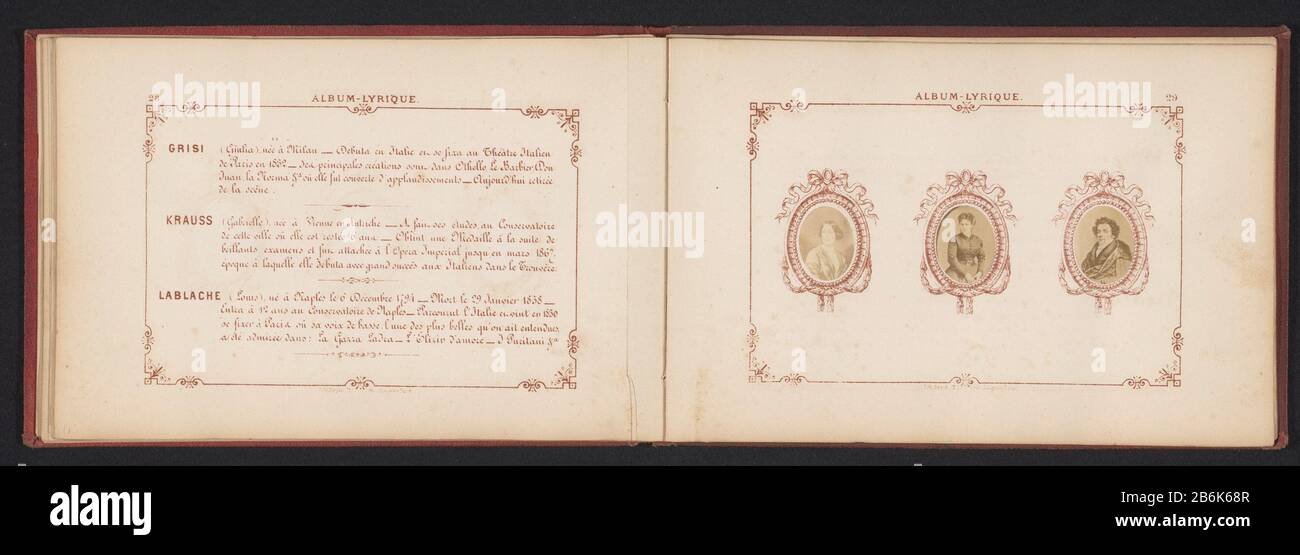 28
ALBUM-LYRIQUE.
GRISI (Giulia), née à Milan — Débuta en Italie et se fixa au Théâtre Italien
de Paris en 1832 — Ses principales créations sont dans Othello, Le Barbier, Don
Juan, la Norma &a où elle fut couverte d'applaudissements — Aujourd'hui retirée
de la scène.
KRAUSS (Gabrielle), née à Vienne en Autriche — A fait ses études au Conservatoire
de cette ville où elle est restée 6 ans — Obtint une Médaille à la suite de
brillants examens et fut attachée à l'Opéra Impérial jusqu'en mars 1867
époque à laquelle elle débuta avec grand succès aux Italiens dans le Trouvère.
LABLACHE (Louis), né à Naples le 6 Décembre 1794 — Mort le 29 Janvier 1858 —
Entra à 12 ans au Conservatoire de Naples — Parcourut l'Italie et vint en 1830
se fixer à Paris où sa voix de basse, l'une des plus belles qu'on ait entendues,
a été admirée dans: La Gazza Ladra — L'Elisir d'amore — I Puritani &a
ALBUM-LYRIQUE.
29
alamy
Image ID: 2B6K68R
www.alamy.com